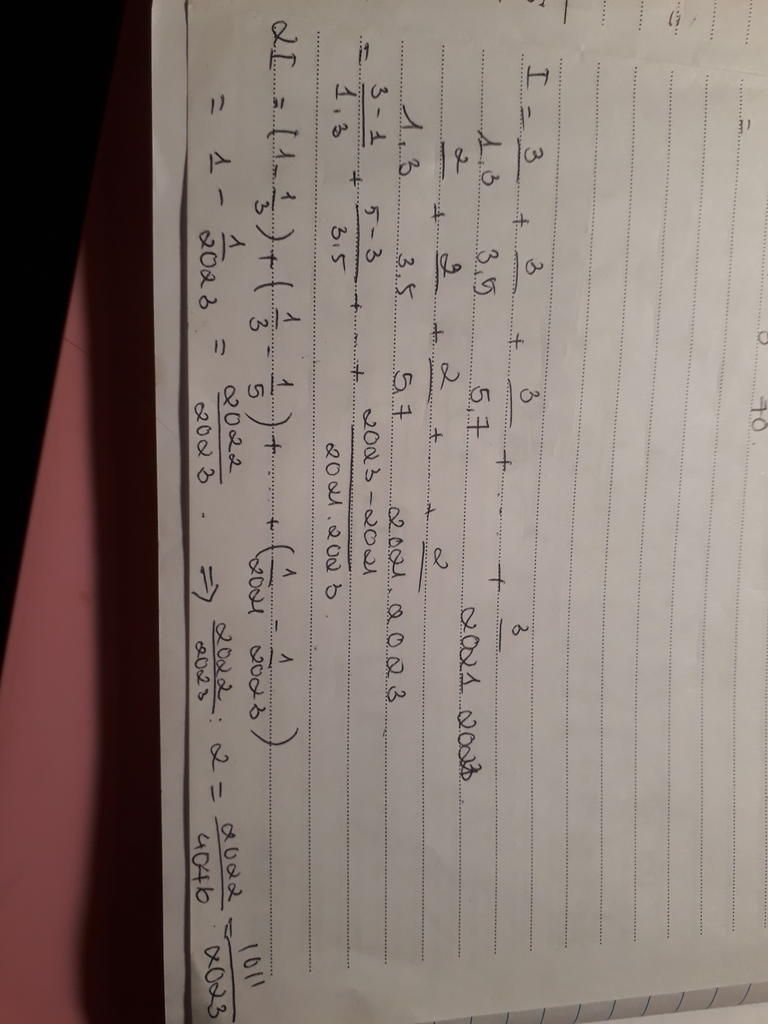 I = 3/1.3 + 3/3.5 + 3/5.7 + ... + 3/2021.2023.
2/1.3 + 2/3.5 + 2/5.7 + + 2/2021.2023
= 3-1/1.3 + 5-3/3.5 + ... + 2023-2021/2021.2023.
2I = (1-1/3) + (1/3 - 1/5) + ...... + (1/2021 - 1/2023)
= 1 - 1/2023 = 2022/2023. => 2022/2023 : 2 = 2022/4046 = 1011/2023